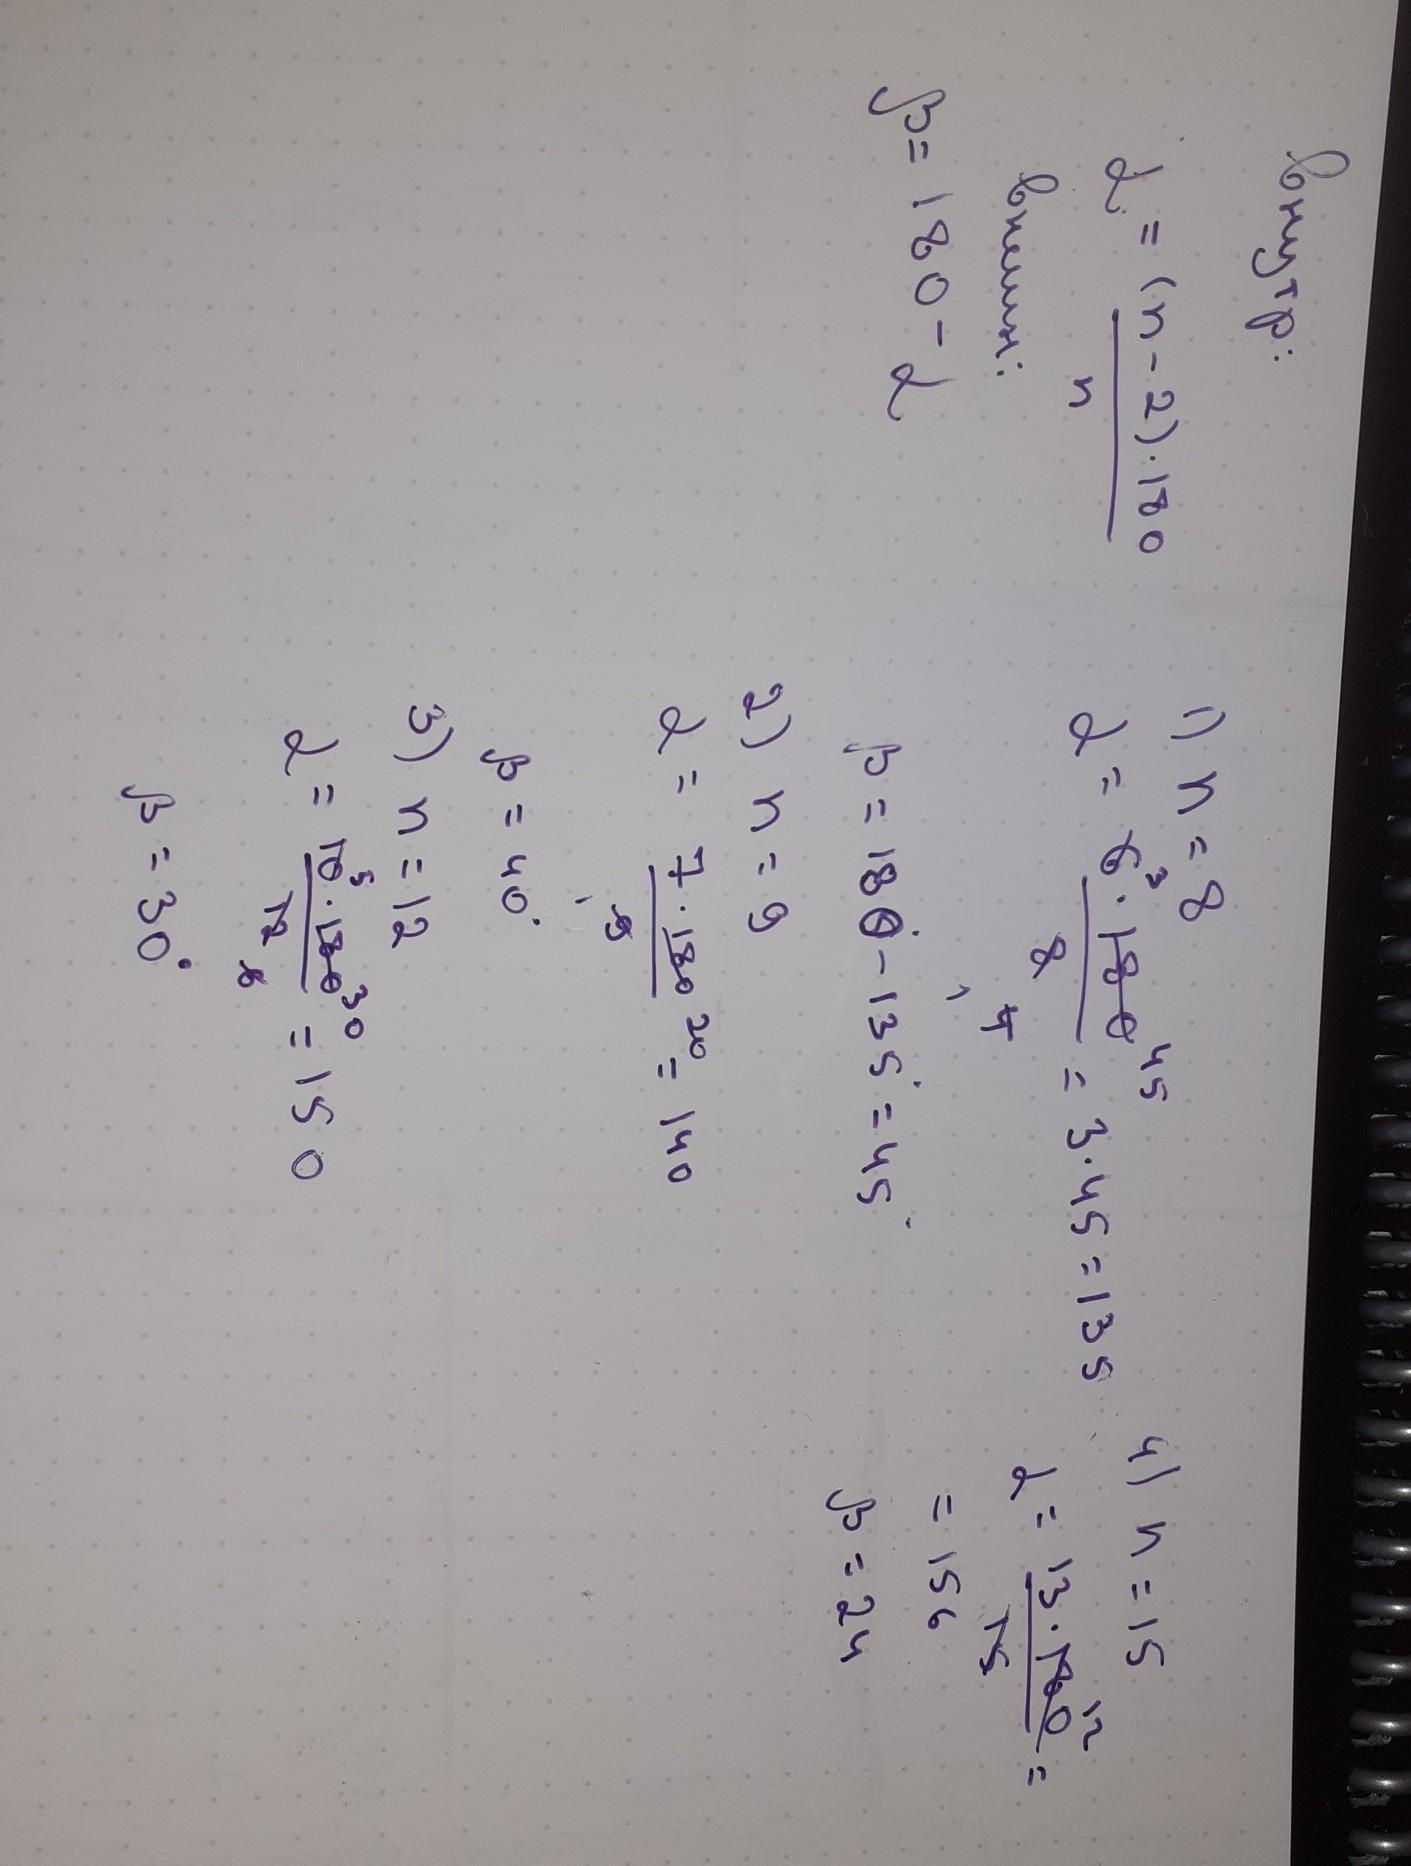 внутр:
α = (n - 2) · 180
n
внешн:
β = 180 - α
1) n = 8
α = 6 3 · 180 45 = 3 · 45 = 135
8
4
1
β = 180° - 135° = 45°
2) n = 9
α = 7 · 180 20 = 140
9
1
β = 40°
3) n = 12
α = 10 5 · 180 30 = 150
12 6
β = 30°
4) n = 15
α = 13 · 180 12 =
15
= 156
β = 24